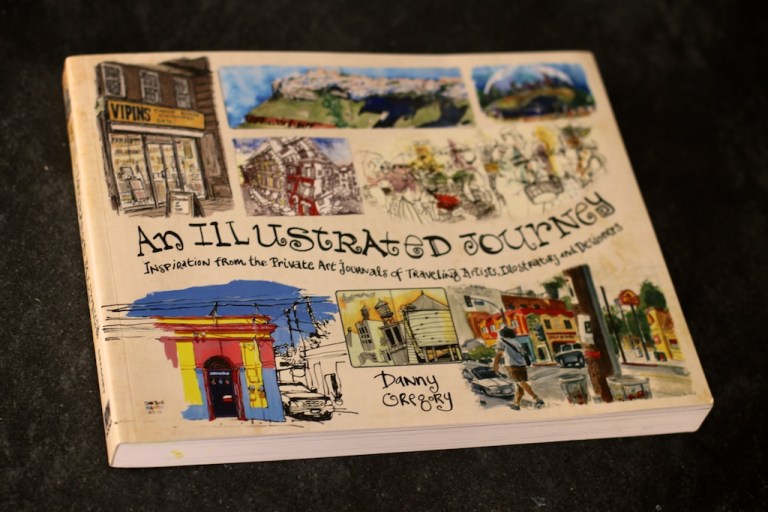 VIPINS
AN ILLUSTRATED JOURNEY
INSPIRATION FROM THE PRIVATE ART JOURNALS OF TRAVELING ARTISTS, ILLUSTRATORS AND DESIGNERS
DANNY
GREGORY